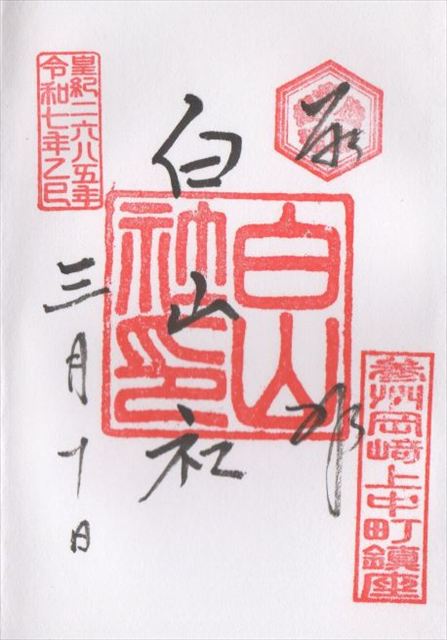 奉拝
参州岡﨑上中町鎮座
白山社
白山
社印
皇紀二六八五年
令和七年乙巳
三月十日